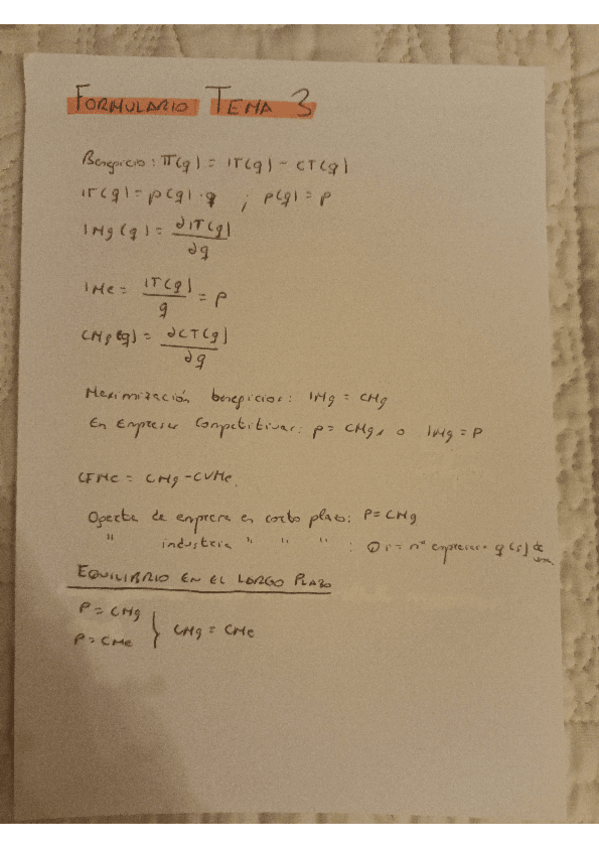 FORMULARIO TEMA 3
Beneficio: π(q) = IT(q) - CT(q)
IT(q) = p(q) · q ; p(q) = p
IMg(q) = ∂IT(q) / ∂q
IMe = IT(q) / q = P
CMg(q) = ∂CT(q) / ∂q
Maximización beneficios: IMg = CMg
En Empresas Competitivas: p = CMg, o IMg = P
CFMe = CMg - CVMe.
Oferta de empresa en corto plazo: P = CMg
" industria " " " : Os = nº empresas · q(s) de una
EQUILIBRIO EN EL LARGO PLAZO
P = CMg
P = CMe } CMg = CMe